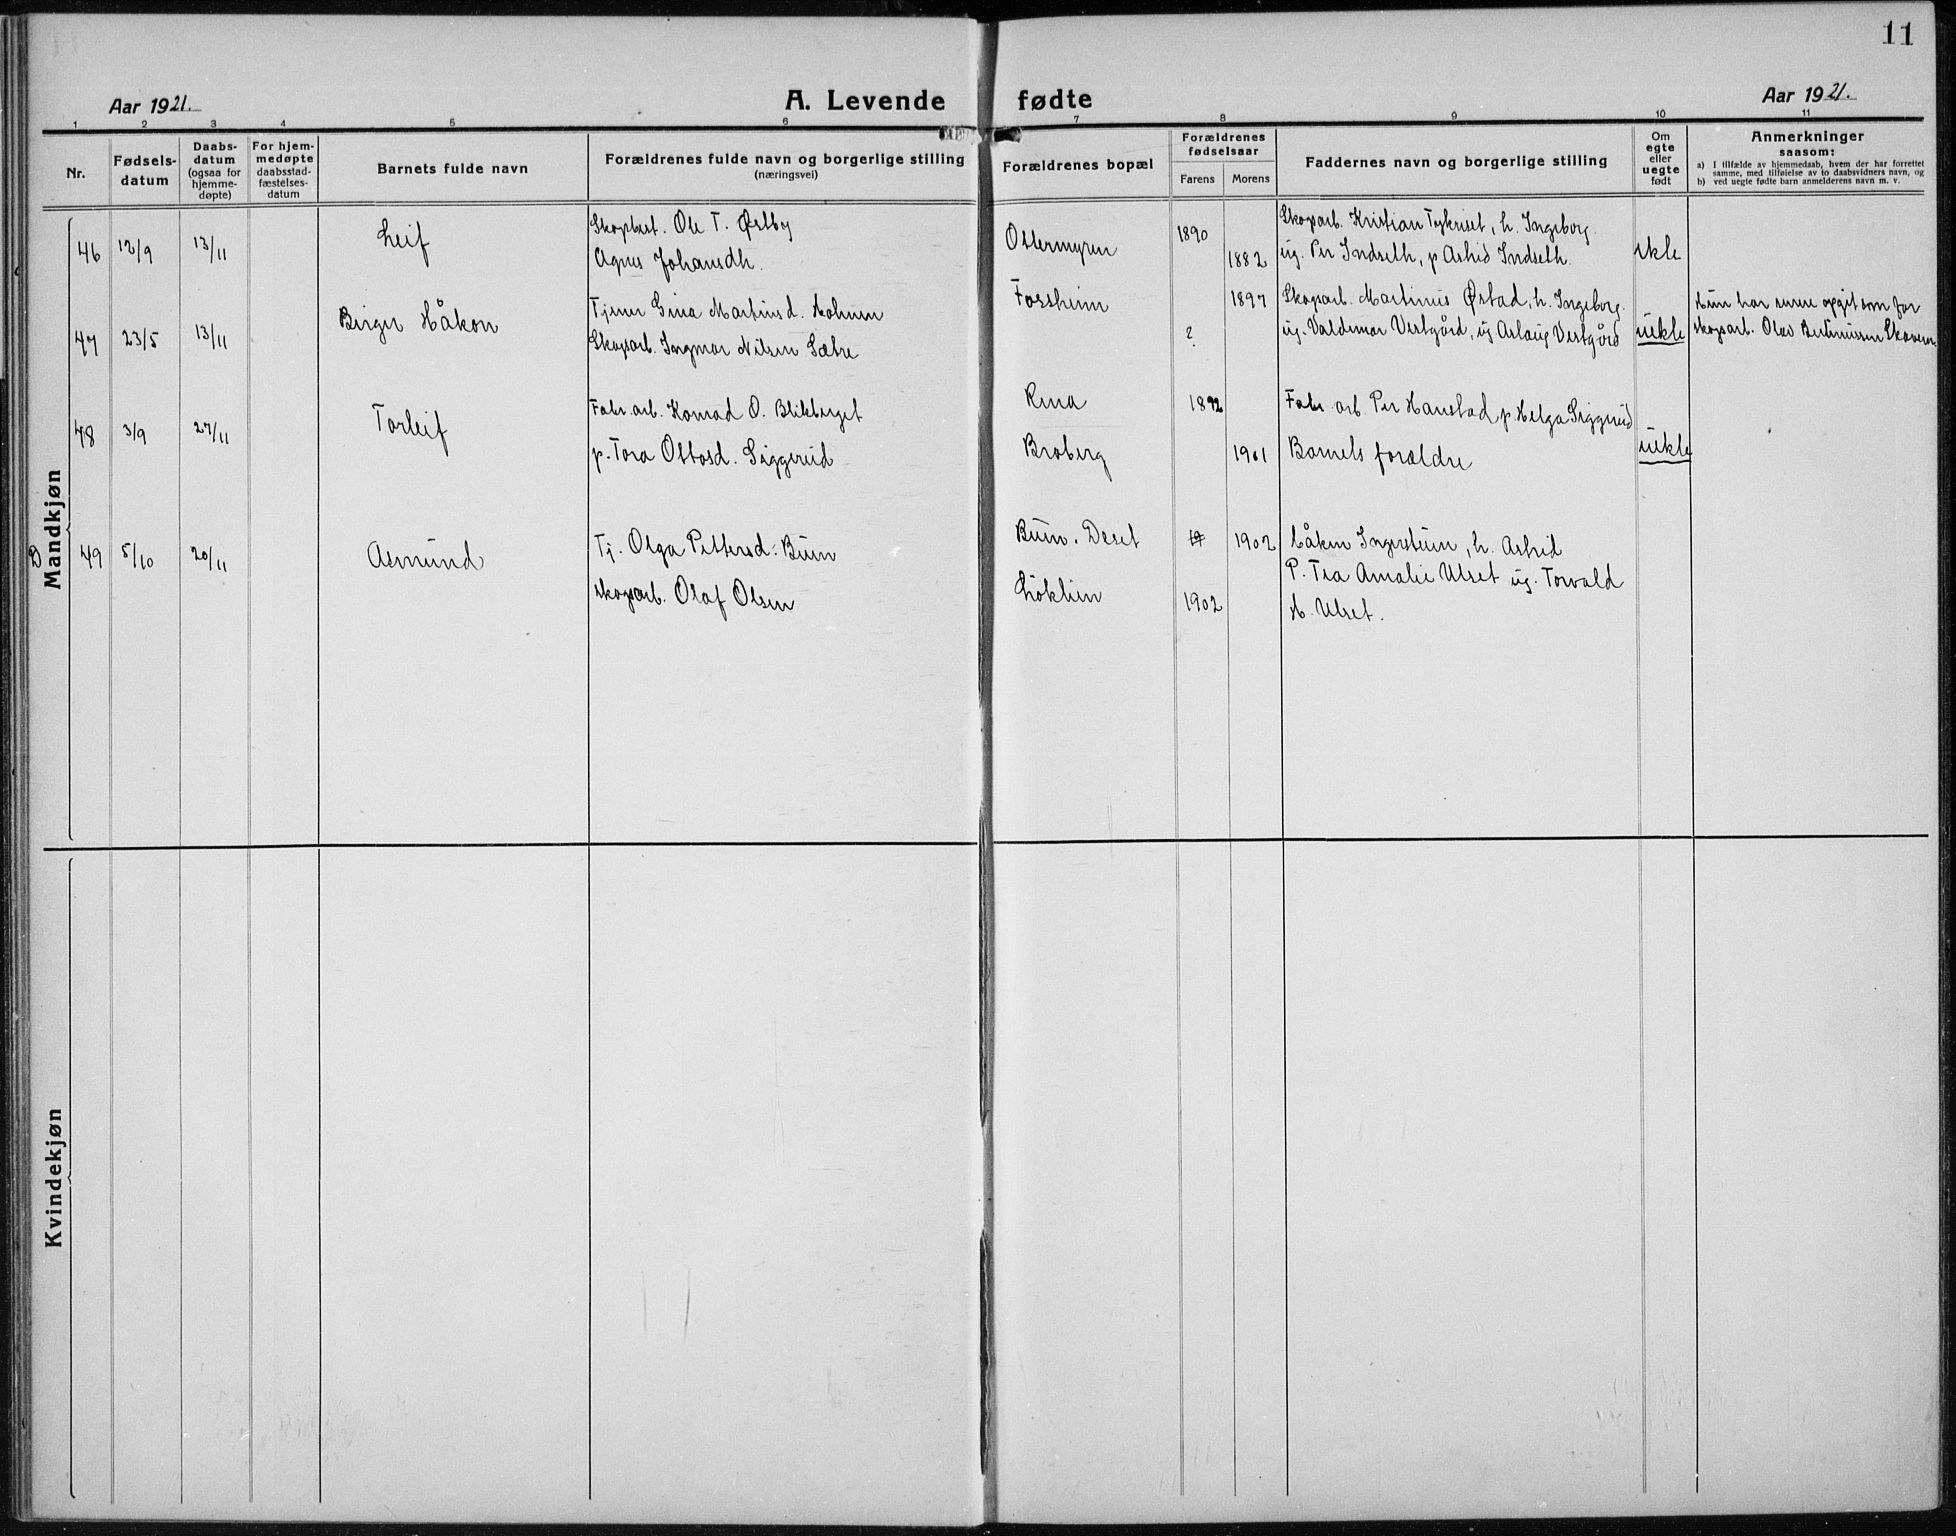 11
Aar 1921.
A. Levende fødte
Aar 1921.
1 2 3 4 5 6 7 8 9 10 11
Nr.
Fødsels-
datum
Daabs-
datum
(ogsaa for
hjemme-
døpte)
For hjem-
medøpte
daabsstad-
fæstelses-
datum
Barnets fulde navn
Forældrenes fulde navn og borgerlige stilling
(næringsvei)
Forældrenes bopæl
Forældrenes
fødselsaar
Farens Morens
Faddernes navn og borgerlige stilling
Om
egte
eller
uegte
født
Anmerkninger
saasom:
a) I tilfælde av hjemmedaab, hvem der har forrettet
samme, med tilføielse av to daabsvidners navn, og
b) ved uegte fødte barn anmelderens navn m. v.
Mandkjøn
46 12/9 13/11 Leif
Ole T. Østby
Agnes Johansdh.
Ottermyren 1890
1882
Skogsarb. Kristian, h. Ingeborg.
ug. Per Indseth, p Astrid Indseth.
ekte
47 23/5 13/11 Birger Håkon
Tjener Gina Martinsd. Holmen
Skogsarb. Ingmar Nilsen Sætre
Forsheim 1897
?
Skogsarb. Martinus Østad, h. Ingeborg.
ug. Valdemar Vestgård, ug Aslaug Vestgård
uekte
Hun har senere opgit som far
skogsarb. Olav
48 3/9 27/11 Torleif
Fabr. arb. Konrad O. Blikberget
p. Tora Ottosd. Siggerud
Rena 1892
Broberg 1901
Fabr. arb Per Hanstad p Helga Siggerud
Barnets forældre
uekte
D 49 5/10 20/11 Asmund
Tj. Olga Pettersd. Buun
skogsarb. Olaf Olsen
Buun. Deset 19 1902
Løklien 1902
Håken, h. Astrid
P. Tea Amalie Ulset ug. Torvald
A. Ulset.
Kvindekjøn